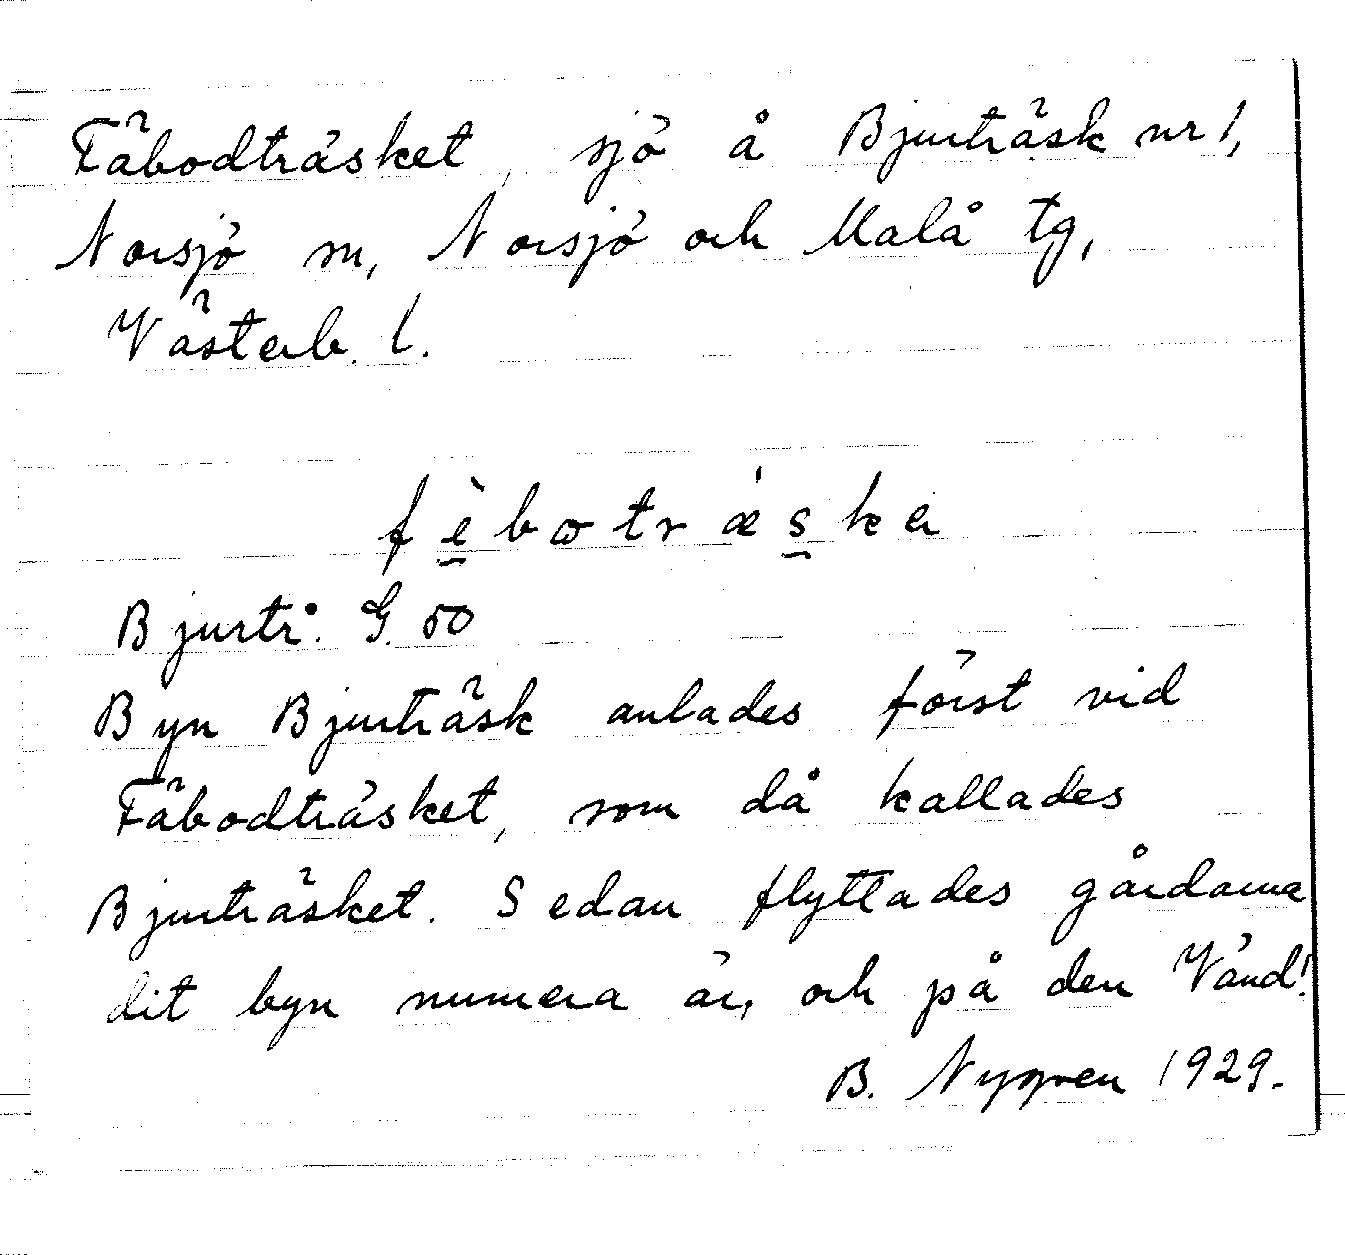 Fäbodträsket, sjö å Bjurträsk nr 1,
Norsjö sn, Norsjö och Malå tg,
Västerb. l.
fèbωtrǽske
Bjurtr. G. 50
Byn Bjurträsk anlades först vid
Fäbodträsket, som då kallades
Bjurträsket. Sedan flyttades gårdarna
dit byn numera är, och på den Vänd!
B. Nygren 1929.